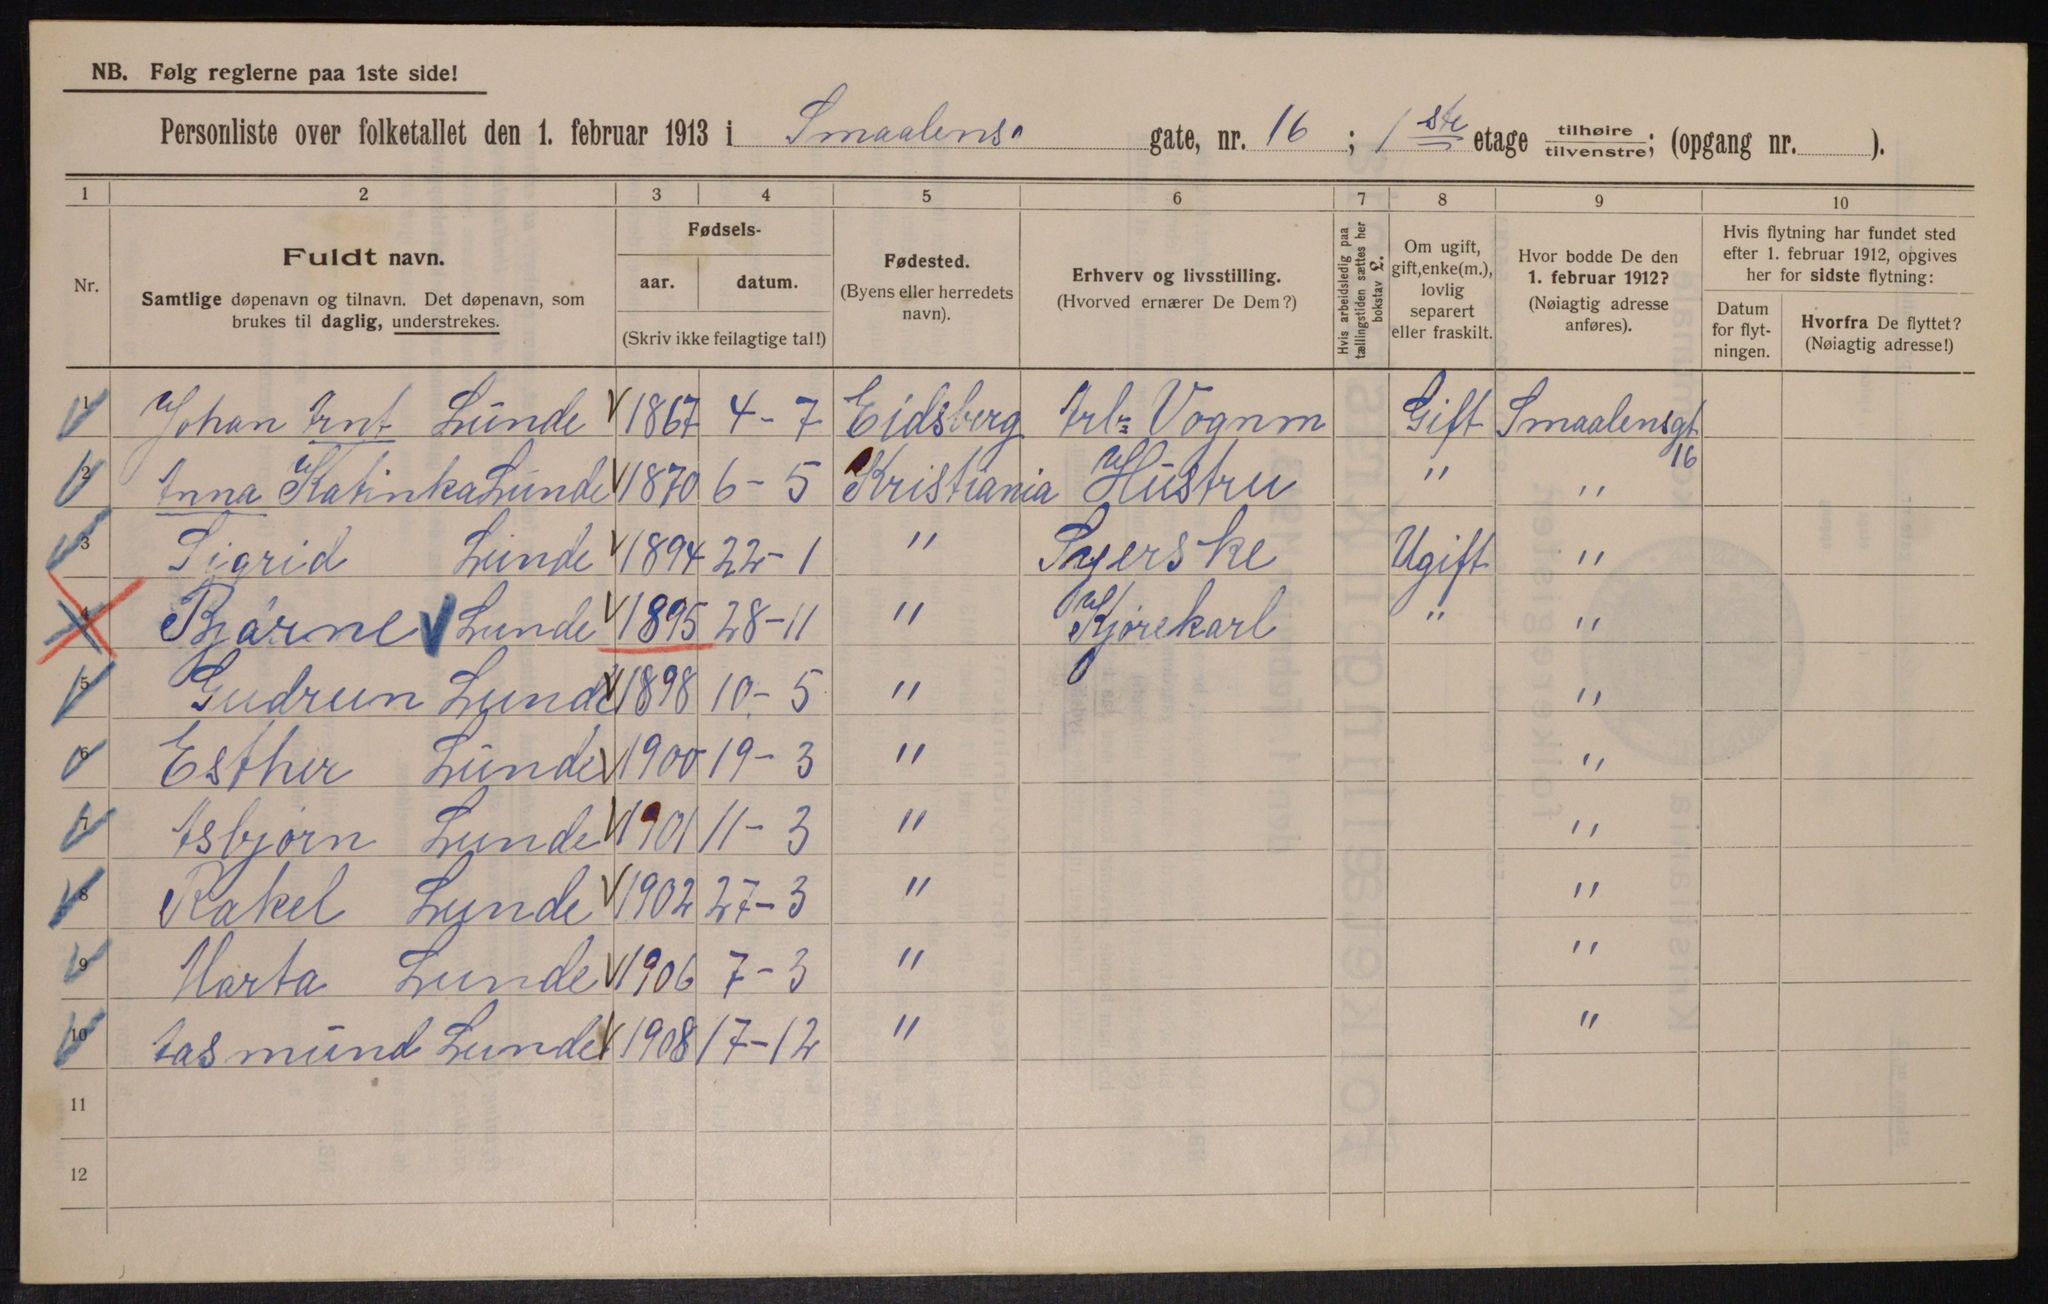 NB. Følg reglerne paa 1ste side!
Personliste over folketallet den 1. februar 1913 i Smaalens gate, nr. 16; 1ste etage tilhøire/tilvenstre; (opgang nr. ).
1 2 3 4 5 6 7 8 9 10
Nr.
Fuldt navn.
Samtlige døpenavn og tilnavn. Det døpenavn, som
brukes til daglig, understrekes.
Fødsels-
aar. datum.
(Skriv ikke feilagtige tal!)
Fødested.
(Byens eller herredets
navn).
Erhverv og livsstilling.
(Hvorved ernærer De Dem?)
Hvis arbeidsledig paa
tællingstiden sættes her
bokstav L.
Om ugift,
gift, enke(m.),
lovlig
separert
eller fraskilt.
Hvor bodde De den
1. februar 1912?
(Nøiagtig adresse
anføres).
Hvis flytning har fundet sted
efter 1. februar 1912, opgives
her for sidste flytning:
Datum
for flyt-
ningen.
Hvorfra De flyttet?
(Nøiagtig adresse!)
1 Johan Arnt Lunde 1867 4-7 Eidsberg Arb= Vognm Gift Smaalensgt 16
2 Anna Katinka Lunde 1870 6-5 Kristiania Hustru " "
3 Sigrid Lunde 1894 22-1 " Syerske Ugift "
4 Bjarne Lunde 1895 28-11 " Kjørekarl " "
5 Gudrun Lunde 1898 10-5 " "
6 Esther Lunde 1900 19-3 " "
7 Asbjørn Lunde 1901 11-3 " "
8 Rakel Lunde 1902 27-3 " "
9 Marta Lunde 1906 7-3 " "
10 Aasmund Lunde 1908 17-12 " "
11
12